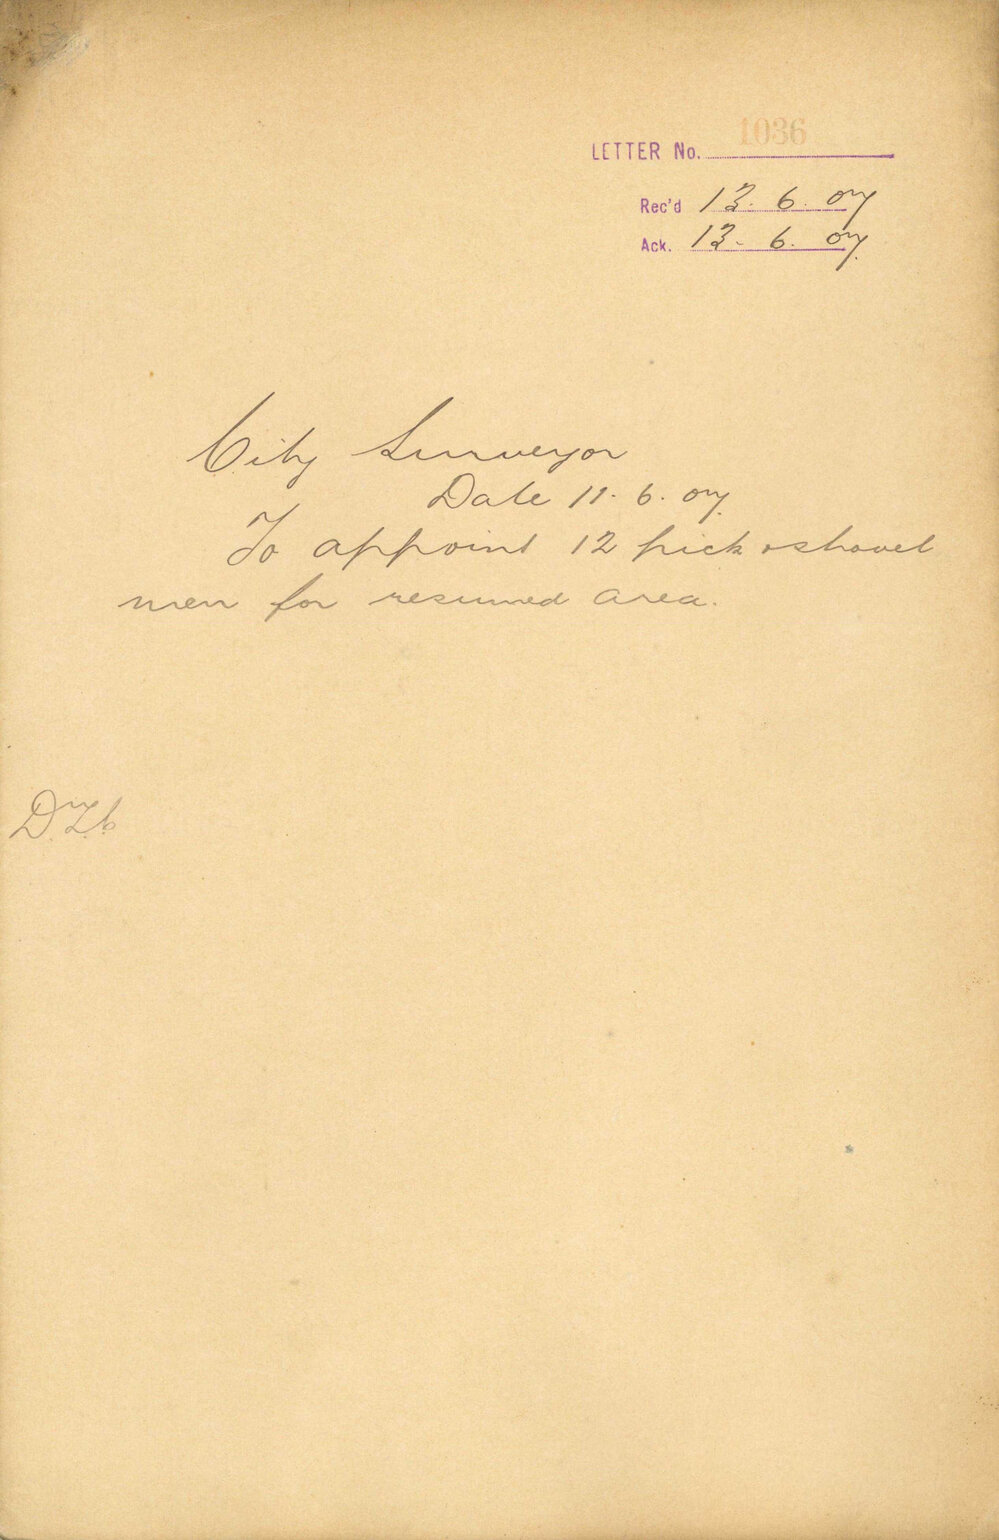 LETTER No. 1036
Rec'd 13. 6. 07
Ack. 13. 6. 07.
City Surveyor
Date 11. 6. 07.
To appoint 12 pick & shovel
men for resumed area.